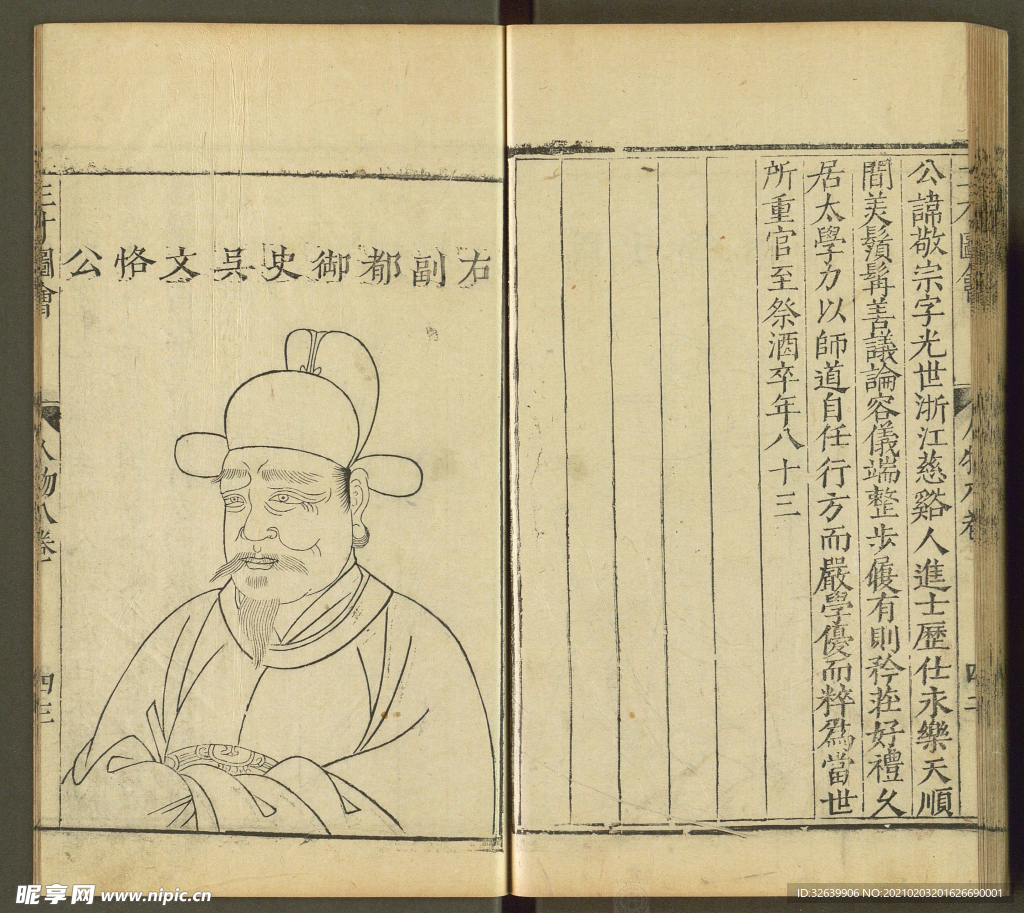 公諱敬宗字光世浙江慈谿人進士歷仕永樂天順
間美鬚髯善議論容儀端整步履有則矜莊好禮久
居太學力以師道自任行方而嚴學優而粹爲當世
所重官至祭酒卒年八十三
右副都御史吳文恪公
三才圖會
人物八卷
四三
昵享网 www.nipic.cn
ID:32639906 NO:20210203201626690001